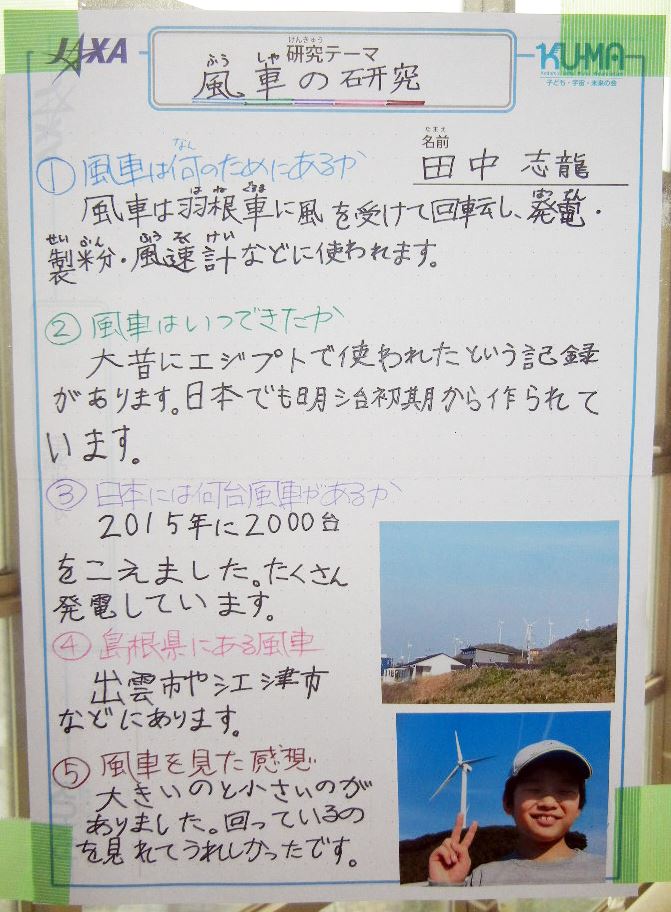 JAXA
けんきゅう
研究テーマ
KUMA
子ども・宇宙・未来の会
ふう しゃ
風車の研究
なまえ
名前
田中 志龍
なん
①風車は何のためにあるか
はね ぐるま はつでん
風車は羽根車に風を受けて回転し、発電・
せいふん ふうそくけい
製粉・風速計などに使われます。
②風車はいつできたか
大昔にエジプトで使われたという記録
があります。日本でも明治初期から作られて
います。
③日本には何台風車があるか
2015年に2000台
をこえました。たくさん
発電しています。
④島根県にある風車
出雲市や江津市
などにあります。
⑤風車を見た感想
大きいのと小さいのが
ありました。回っているの
を見れてうれしかったです。